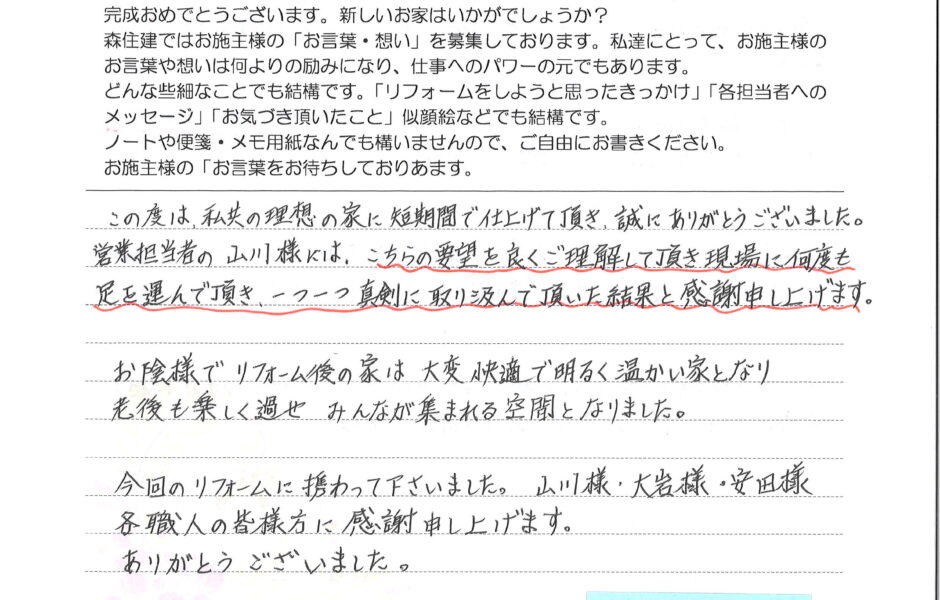 完成おめでとうございます。新しいお家はいかがでしょうか？
森住建ではお施主様の「お言葉・想い」を募集しております。私達にとって、お施主様の
お言葉や想いは何よりの励みになり、仕事へのパワーの元でもあります。
どんな些細なことでも結構です。「リフォームをしようと思ったきっかけ」「各担当者への
メッセージ」「お気づき頂いたこと」似顔絵などでも結構です。
ノートや便箋・メモ用紙なんでも構いませんので、ご自由にお書きください。
お施主様の「お言葉をお待ちしておりあます。
この度は、私共の理想の家に短期間で仕上げて頂き、誠にありがとうございました。
営業担当者の山川様には、こちらの要望を良くご理解して頂き現場に何度も
足を運んで頂き、一つ一つ真剣に取り汲んで頂いた結果と感謝申し上げます。
お陰様でリフォーム後の家は大変快適で明るく温かい家となり
老後も楽しく過せ みんなが集まれる空間となりました。
今回のリフォームに携わって下さいました。山川様・大岩様・安田様
各職人の皆様方に感謝申し上げます。
ありがとうございました。